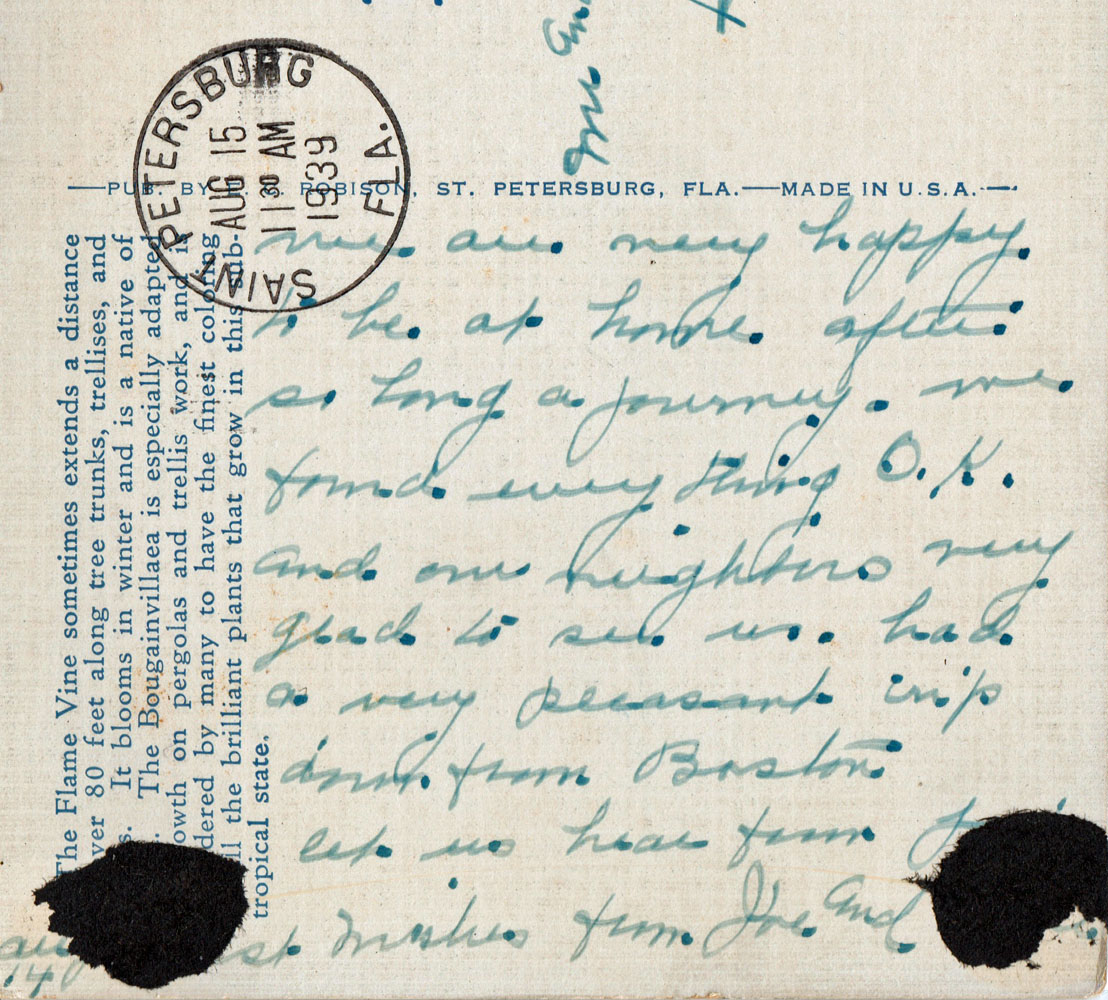 Mr and
SAINT PETERSBURG FLA.
AUG 15
11 30 AM
1939
PUB. BY ROBISON, ST. PETERSBURG, FLA.—MADE IN U.S.A.
The Flame Vine sometimes extends a distance
ver 80 feet along tree trunks, trellises, and
s. It blooms in winter and is a native of
. The Bougainvillaea is especially adapted
owth on pergolas and trellis work, and is
dered by many to have the finest coloring
ll the brilliant plants that grow in this sub-
tropical state.
we are very happy
to be at home after
so long a journey. we
found every thing O.K.
and our neighbors very
glad to see us. had
a very pleasant trip
down from Boston
let us hear from
st wishes from Joe and
14